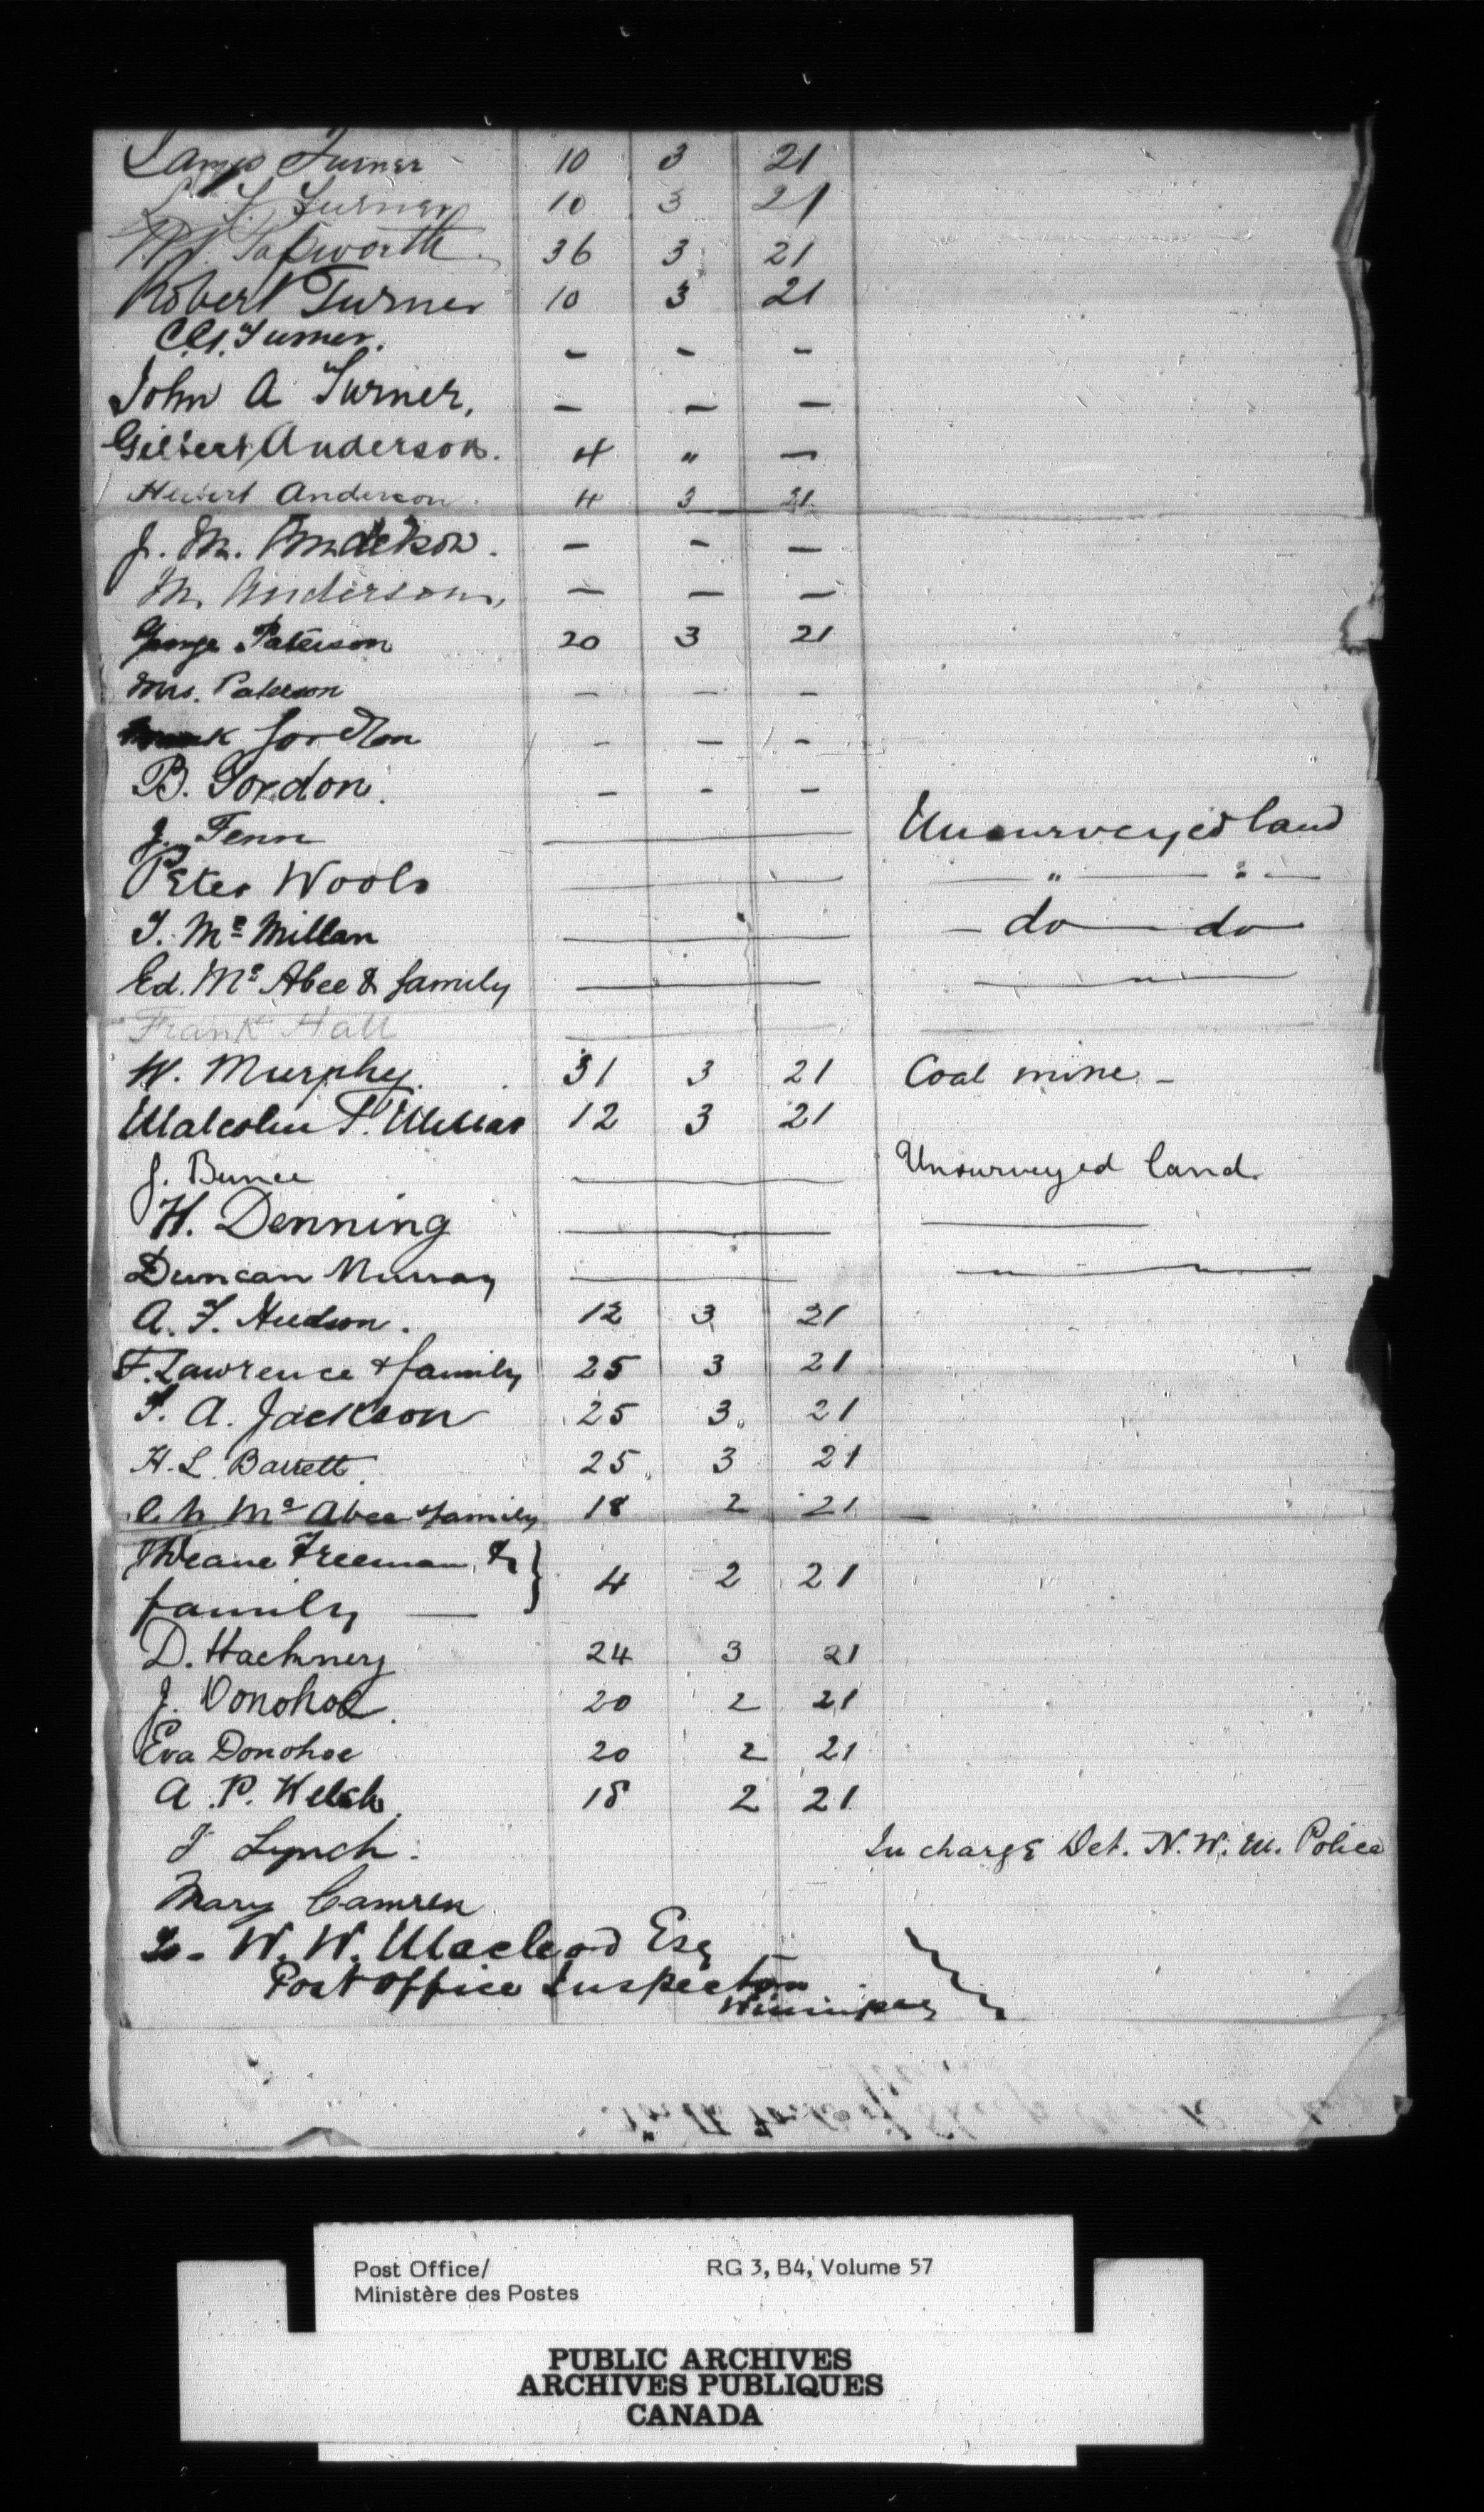 James Turner 10 3 21
Turner 10 3 21
Papworth 36 3 21
Robert Turner 10 3 21
Turner. – – –
John A Turner, – – –
Gilbert Anderson. 4 " –
Herbert Anderson. 4 3 21
J. M. Anderson. – – –
M. Anderson, – – –
George Paterson 20 3 21
Mrs. Paterson – – –
Gordon – – –
B. Gordon. – – –
J. Fenn ——— Unsurveyed land
Peter Wools ——— — " — " —
T. Mc Millan ——— – do — do
Ed. Mc Abee & family ——— ———
Frank Hall ——— ———
W. Murphy. 31 3 21 Coal mine –
Malcolm T. Millar 12 3 21
J. Bunce ——— Unsurveyed land.
H. Denning ——— ———
Duncan Murray ——— — " — " —
A. F. Hudson. 12 3 21
F. Lawrence & family 25 3 21
T. A. Jackson 25 3 21
H. L. Barrett. 25 3 21
Mc Abee & family 18 2 21 –
Deane Freeman & } 4 2 21
family —
D. Hackney 24 3 21
J. Donohoe. 20 2 21
Eva Donohoe 20 2 21
A. P. Welsh. 18 2 21
Lynch. In charge Det. N. W. M. Police
Mary Camren
To– W. W. Macleod Esq
Post Office Inspector
Winnipeg
Post Office/ RG 3, B4, Volume 57
Ministère des Postes
PUBLIC ARCHIVES
ARCHIVES PUBLIQUES
CANADA